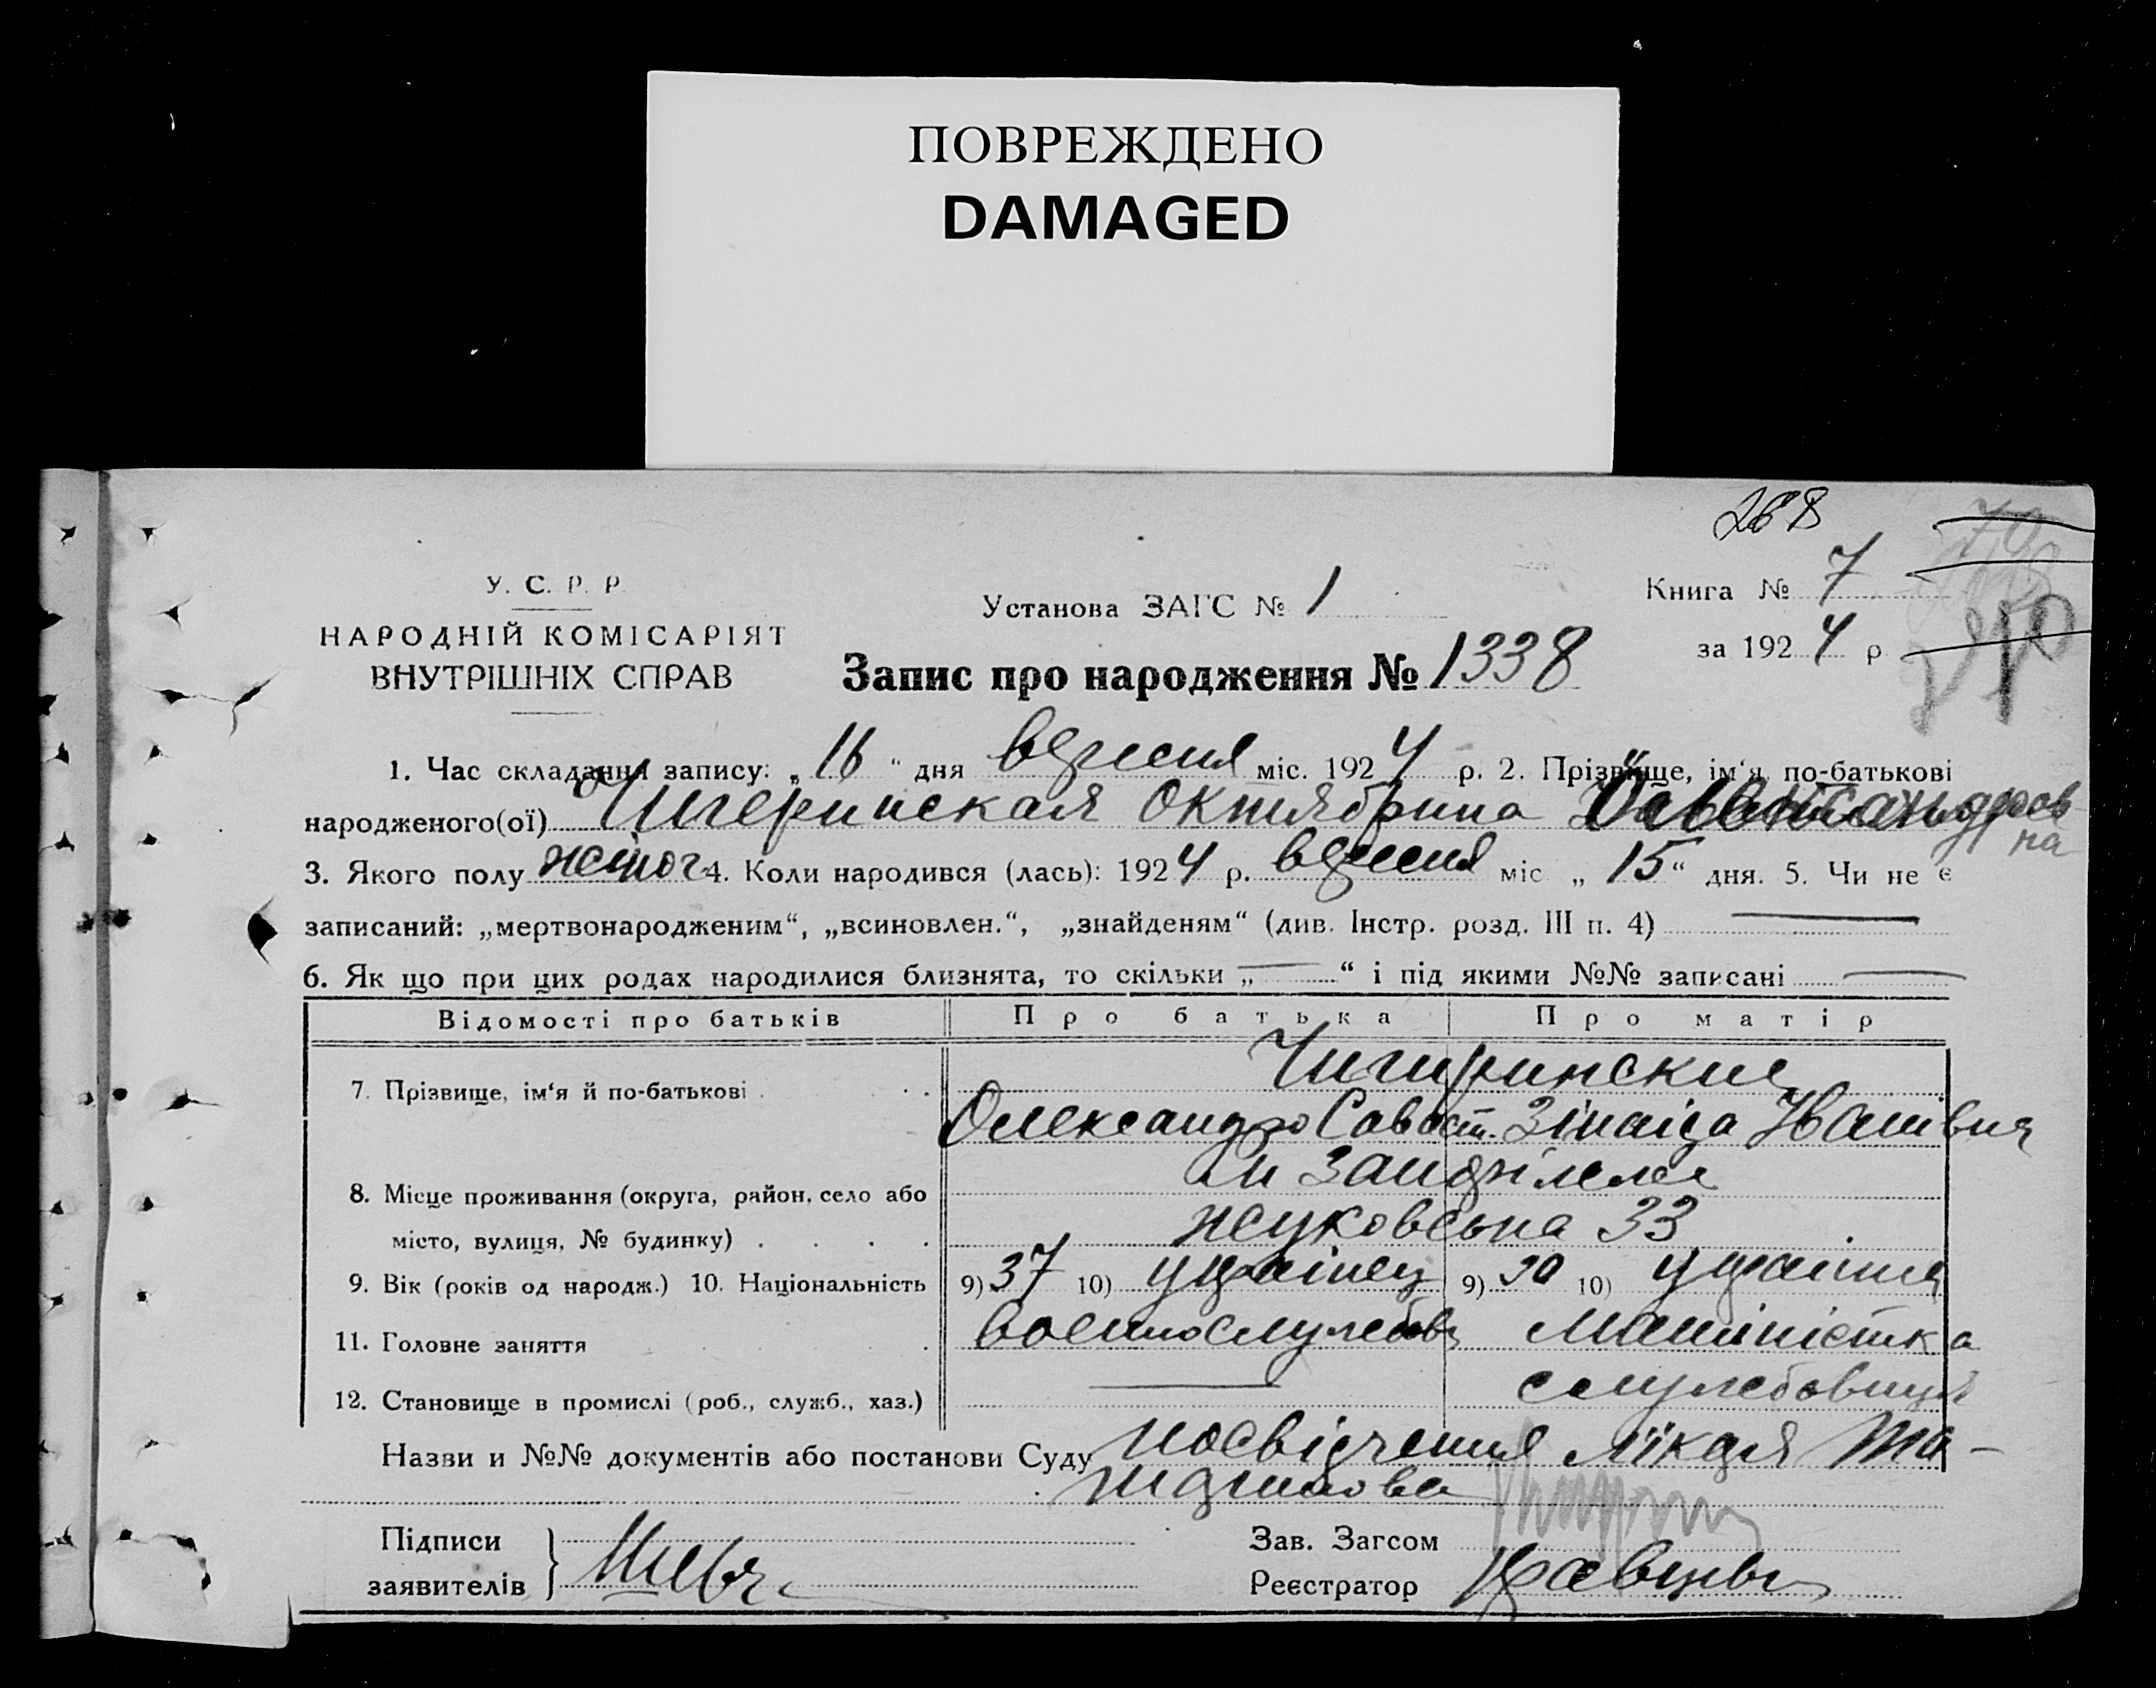 ПОВРЕЖДЕНО
DAMAGED
268
У. С. Р. Р.
НАРОДНІЙ КОМІСАРІЯТ
ВНУТРІШНІХ СПРАВ
Установа ЗАГС № 1
Книга № 7
за 1924 р.
Запис про народження № 1338
1. Час складання запису: „16“ дня вересня міс. 1924 р. 2. Прізвище, ім‘я, по-батькові
народженого(ої) Чигеринская Октябрина Олександров
на
3. Якого полу жіноч. 4. Коли народився (лась): 1924 р. вересня міс „15“ дня. 5. Чи не є
записаний: „мертвонародженим“, „всиновлен.“, „знайденям“ (див. Інстр. розд. III п. 4) —
6. Як що при цих родах народилися близнята, то скільки „—“ і під якими №№ записані —
Відомості про батьків Про батька Про матір
Чигиринские
7. Прізвище, ім‘я й по-батькові Олександр Савват. Зінаіда Іванівна
8. Місце проживання (округа, район, село або
місто, вулиця, № будинку) Жуковська 33
9. Вік (років од народж.) 10. Національність 9) 37 10) українец 9) 30 10) українка
11. Головне заняття военнослужбов машиністка
12. Становище в промислі (роб., служб., хаз.) — службовиця
Назви и №№ документів або постанови Суду посвідчення лікаря
Підписи
заявителів
Зав. Загсом
Реєстратор